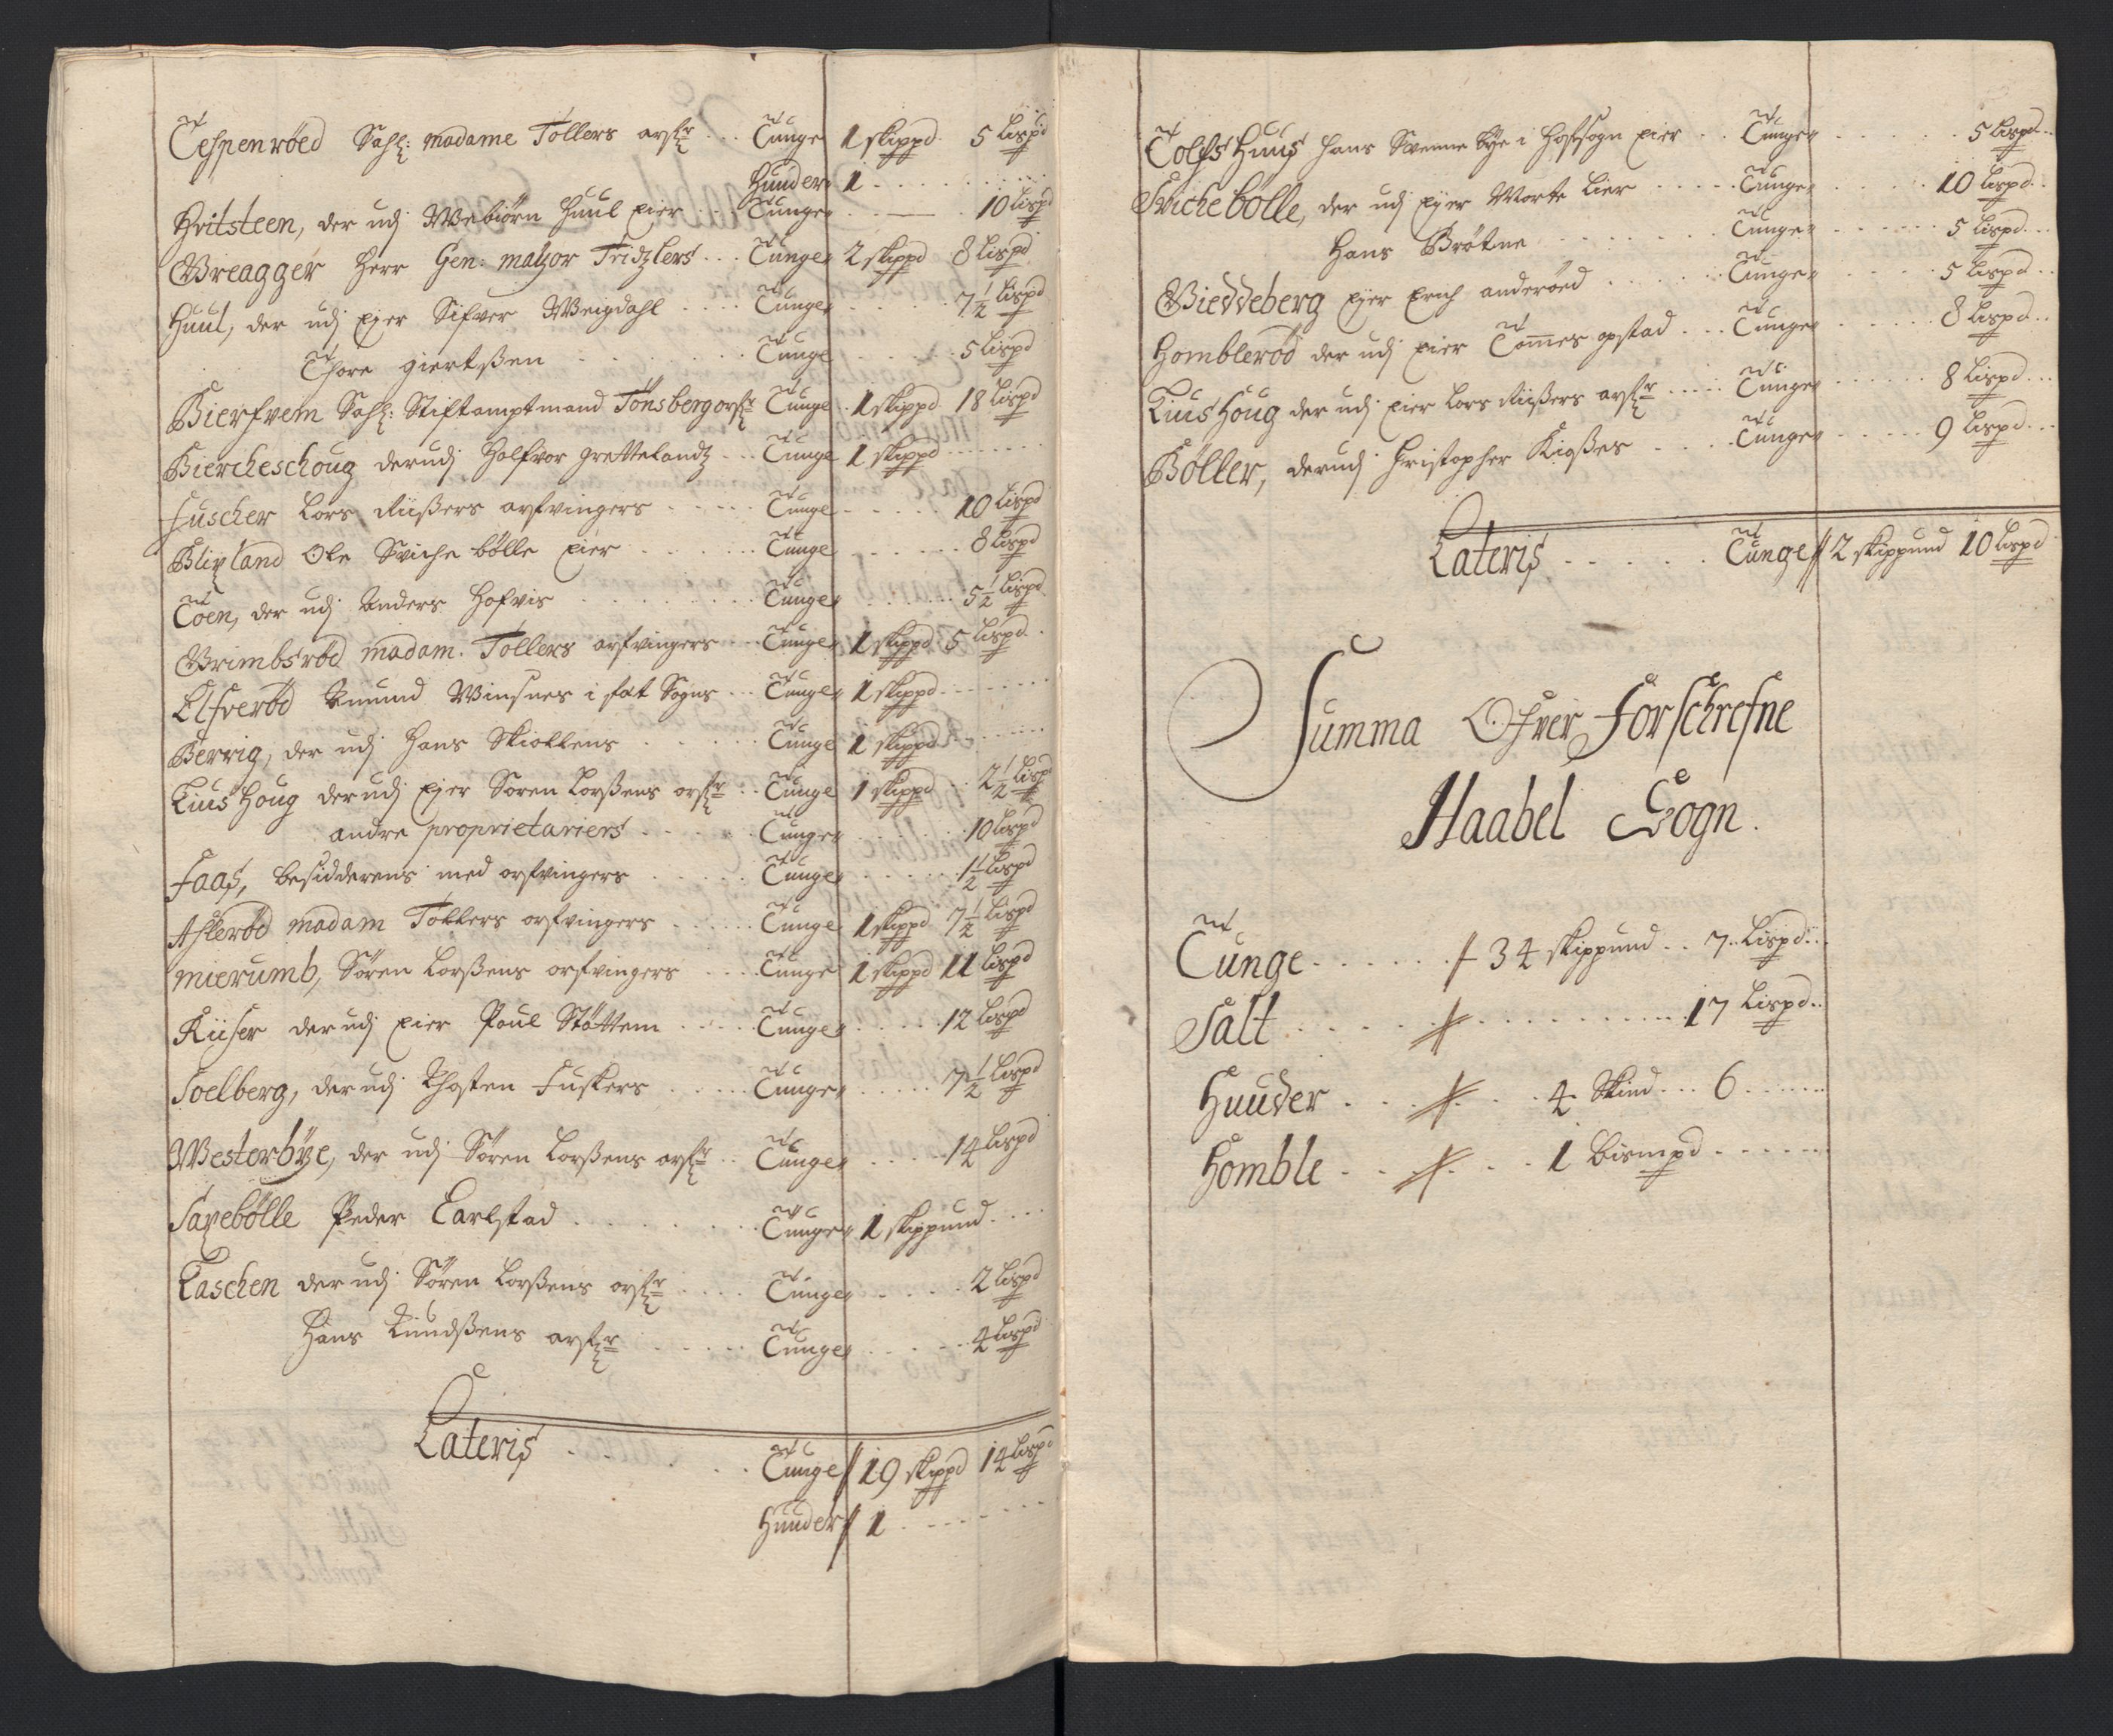 Tespenrøed Sahl: madame Tollers arfr . . . Tunge 1 skippd. 5 Lispd
Huuder 1 . . . .
Hvitsteen, der udj Webiørn Huul Eier . . . Tunge . . . 10 Lispd
Greagger Herr Gen: major Tridzlers . . . Tunge 2 skippd 8 Lispd
Huul, der udj Ejer Sifver Weigdahl . . . . Tunge . . . 7½ Lispd
Thore giertßen . . . . Tunge . . . 5 Lispd
Bierfvem Sahl: Stiftamptmand Tønsberg arfr Tunge 1 skippd 18 Lispd
Biercheschoug derudj Halfvor grettelandz . . . Tunge 1 skippd . . . .
Fuscher Lors Riißers arfvingers . . . . Tunge . . . . 10 Lispd
Blixland Ole Sviche bølle Eier . . . . Tunge . . . . 8 Lispd
Toen, der udj Anders Hofvis . . . . Tunge . . . . 5½ Lispd
Grimbsrød madam. Tollers arfvingers . . . Tunge 1 skippd 5 Lispd
Elfverød Amund Winsnes i Sogns . . . Tunge 1 skippd . . . .
Bervig, der udj Hans Skiollens . . . . Tunge 1 skippd . . . .
Liushoug der udj Ejer Søren Lorßens arfr . . Tunge 1 skippd . . 2½ Lispd
andre proprietariers . . . . Tunge . . . . 10 Lispd
Faas, besidderens med arfvingers . . . . Tunge . . . . 1½ Lispd
Aslerød madam Tollers arfvingers . . . . Tunge 1 skippd 7½ Lispd
Mierumb, Søren Lorßens arfvingers . . . . Tunge 1 skippd 11 Lispd
Kiiser der udj Eier Poul Støttem . . . . Tunge . . . . 12 Lispd
Soelberg, der udj Thosten Fuskers . . . . Tunge . . . . 7½ Lispd
Westerbye, der udj Søren Lorßens arfr . . Tunge . . . . 14 Lispd
Saxebølle Peder Carlstad . . . . Tunge 1 skippund . . . .
Taschen der udj Søren Lorßens arfr . . . . Tunge . . . . 2 Lispd
Hans Knudßens arfr . . . . Tunge . . . . 4 Lispd
Lateris . . . . Tunge // 19 skippd 14 Lispd
Huuder // 1 . . . .
Tolfshuus Hans Svenne bye i Hafsogn Eier . . Tunge . . . . 5 Lispd
Svichebølle, der udj Ejer Morte Lier . . . . Tunge . . . . 10 Lispd
Hans Brøtne . . . . Tunge . . . . 5 Lispd
Gieddeberg Ejer Erich anderød . . . . Tunge . . . . 5 Lispd
Homblerød der udj Eier Tommes opstad . . . Tunge . . . . 8 Lispd
Liushoug der udj Eier Lors Riißers arfr . . . . Tunge . . . . 8 Lispd
Bøller, derudj Christopher Kioßes . . . . Tunge . . . . 9 Lispd
Lateris . . . . Tunge // 2 skippund 10 Lispd
Summa Ofver Forschrefne
Haabel Sogn.
Tunge . . . . // 34 skippund . . 7 Lispd
Salt . . . . // . . . . 17 Lispd
Huuder . . . // . . . 4 Skind . . . 6 . . . .
Homble . . . // . . . 1 Bismpd . . . .